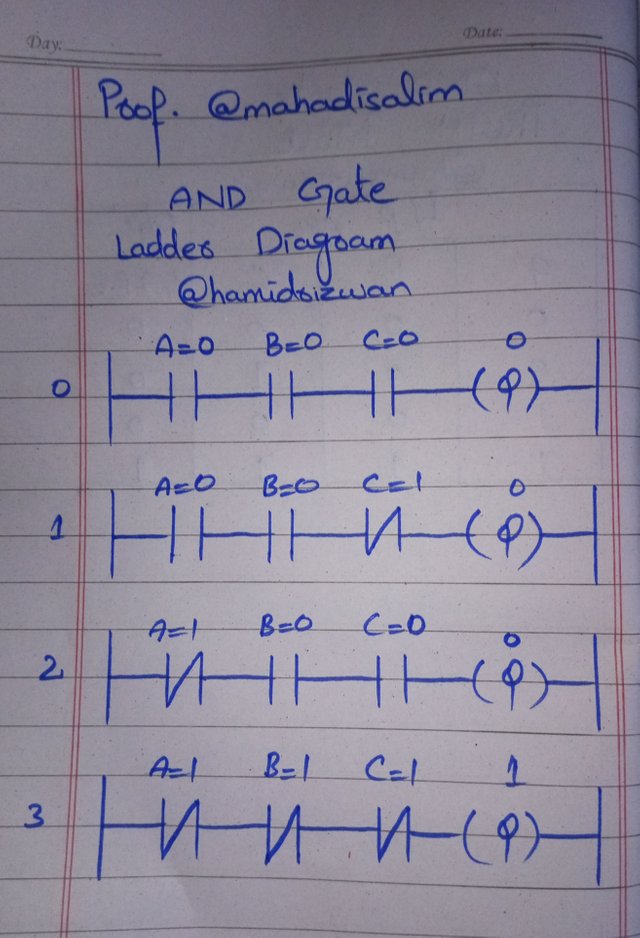 Day:
Date:
Prof. @mahadisalim
AND Gate
Ladder Diagram
@hamidrizwan
A=0 B=0 C=0 0
0 (φ)
A=0 B=0 C=1 0
1 (φ)
A=1 B=0 C=0 0
2 (φ)
A=1 B=1 C=1 1
3 (φ)